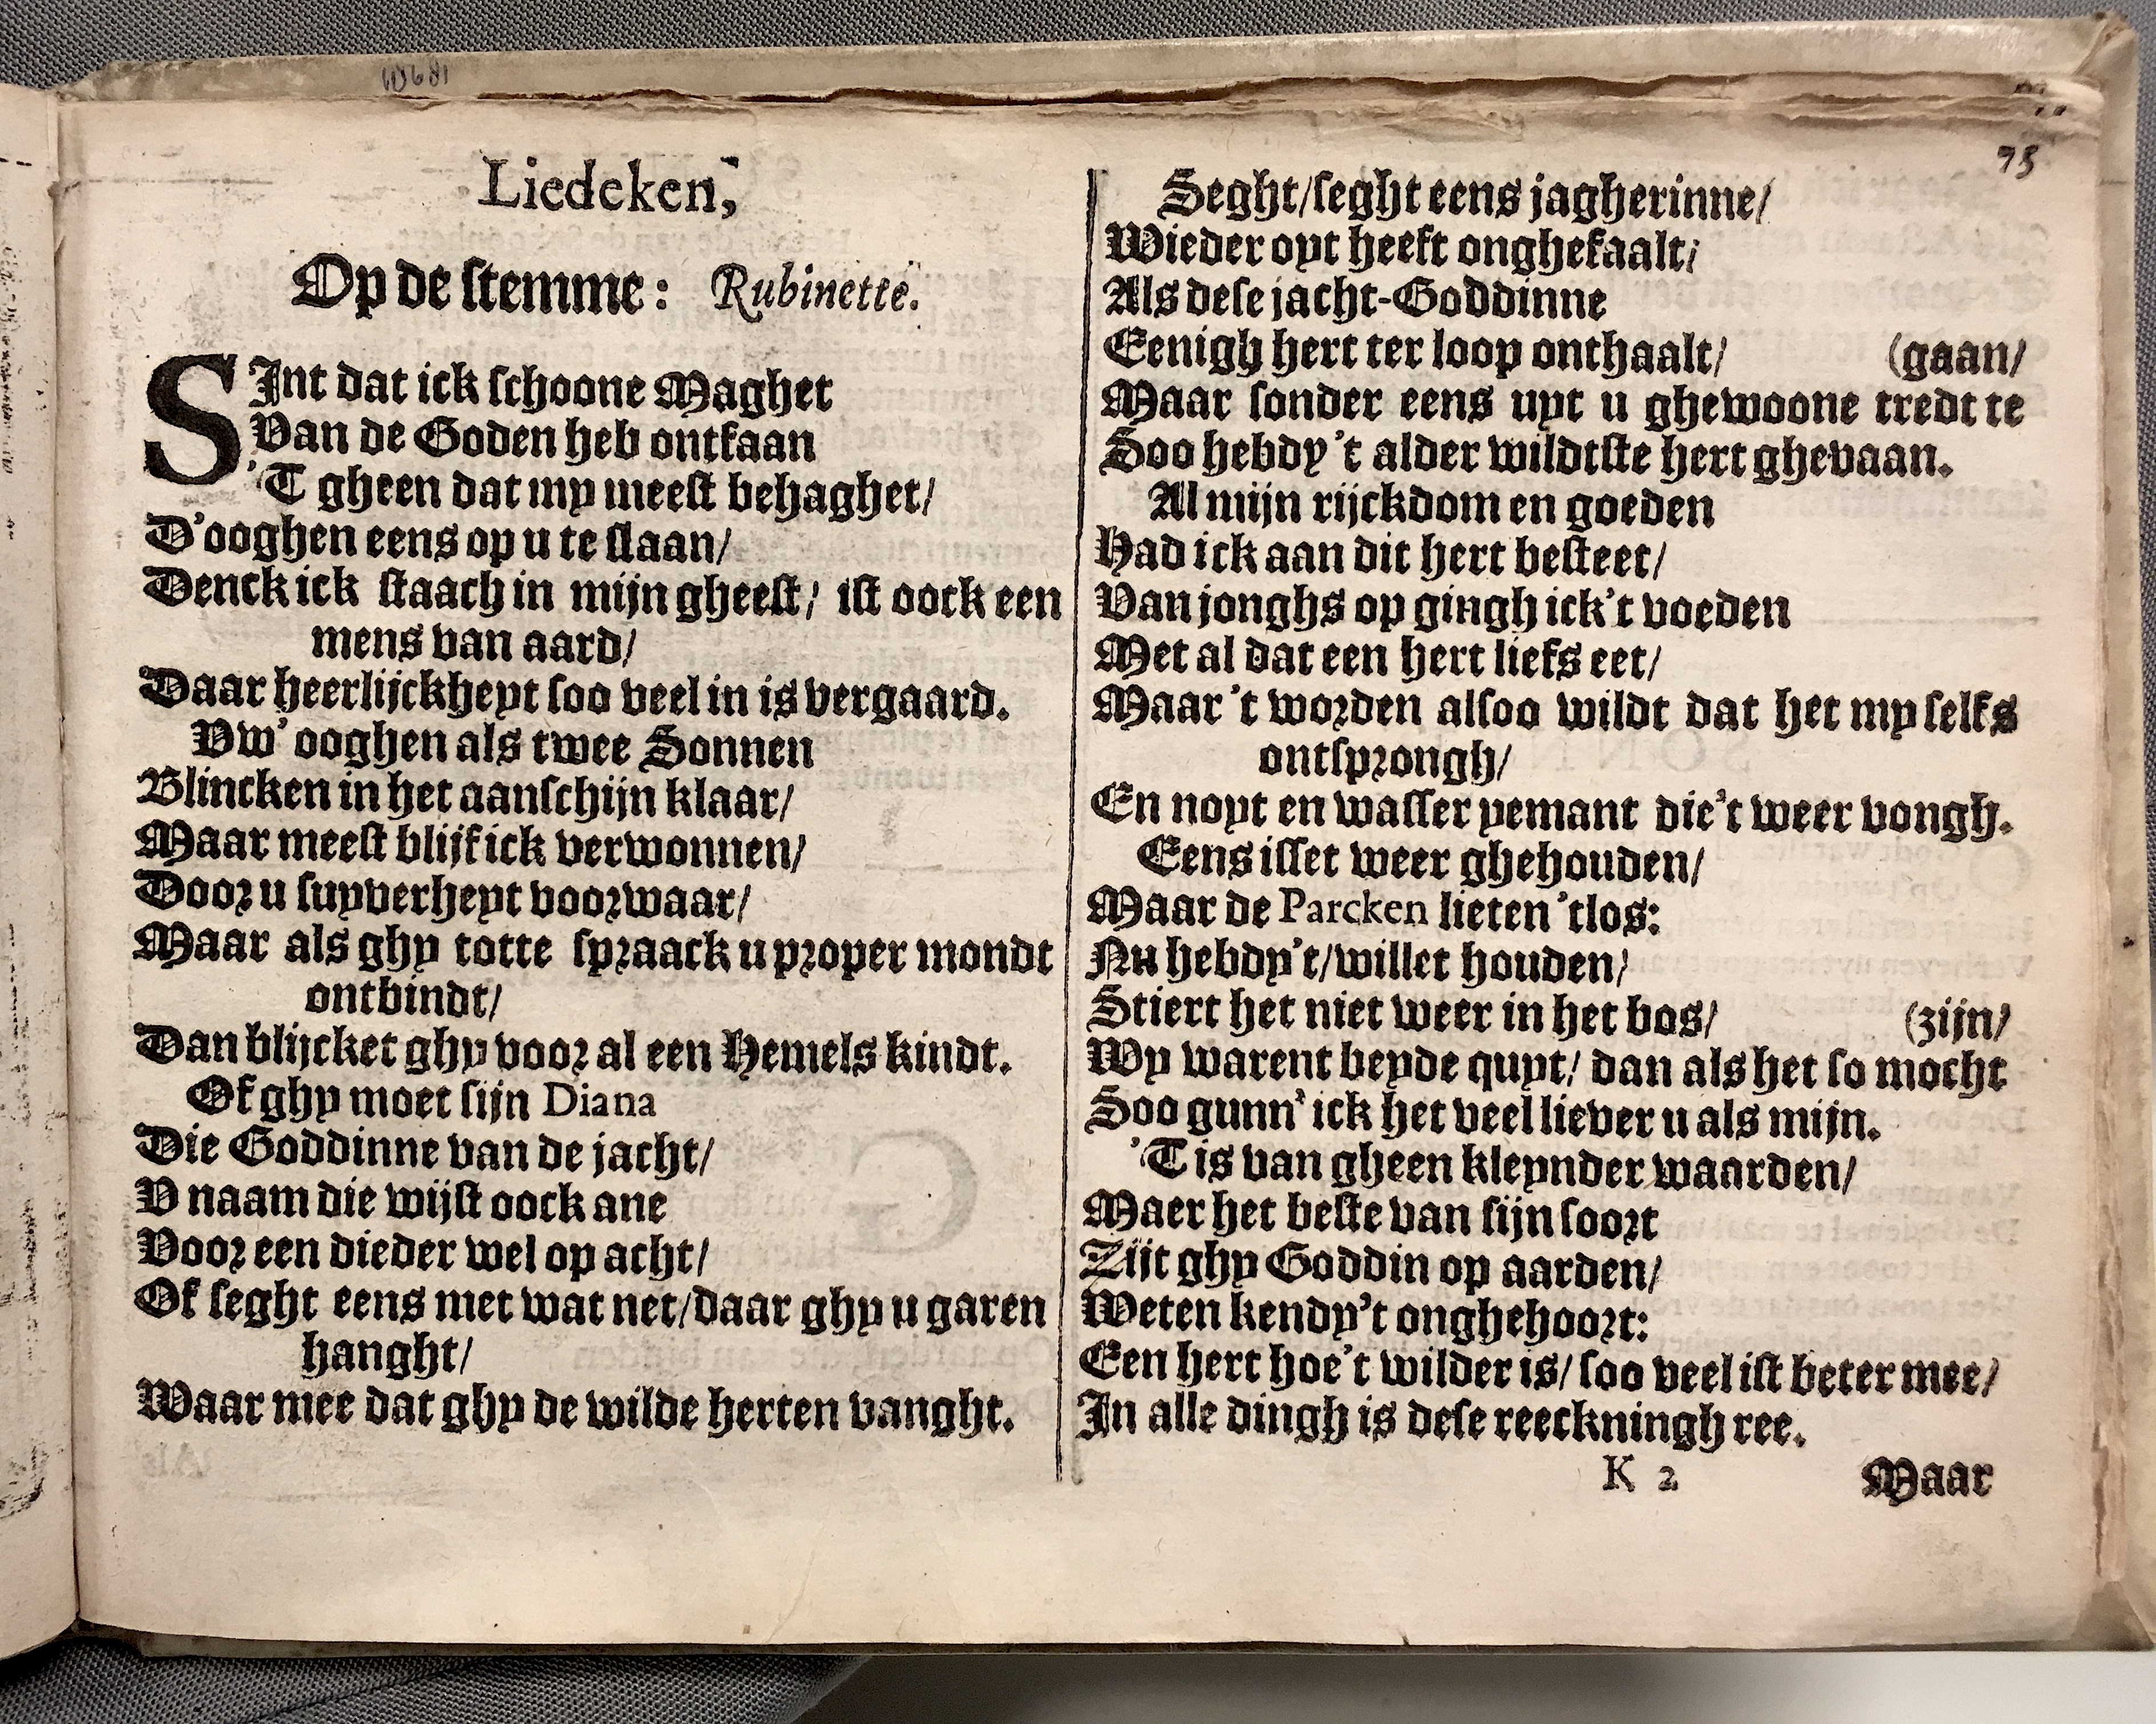 Liedeken,
Op de stemme: Rubinette.
SJnt dat ick schoone Maghet
Van de Goden heb ontfaan
'T gheen dat my meest behaghet/
D'ooghen eens op u te slaan/
Denck ick staach in mijn gheest/ ist oock een
mens van aard/
Daar heerlijckheyt soo veel in is vergaard.
Vw' ooghen als twee Sonnen
Blincken in het aanschijn klaar/
Maar meest blijf ick verwonnen/
Door u suyverheyt voorwaar/
Maar als ghy totte spraack u proper mondt
ontbindt/
Dan blijcket ghy voor al een Hemels kindt.
Of ghy moet sijn Diana
Die Goddinne van de jacht/
V naam die wijst oock ane
Voor een dieder wel op acht/
Of seght eens met wat net/daar ghy u garen
hanght/
Waar mee dat ghy de wilde herten vanght.
Seght/seght eens jagherinne/
Wieder oyt heeft onghefaalt/
Als dese jacht-Goddinne
Eenigh hert ter loop onthaalt/ (gaan/
Maar sonder eens uyt u ghewoone tredt te
Soo hebdy't alder wildtste hert ghevaan.
Al mijn rijckdom en goeden
Had ick aan dit hert besteet/
Van jonghs op gingh ick't voeden
Met al dat een hert liefs eet/
Maar 't worden alsoo wildt dat het my selfs
ontsprongh/
En noyt en wasser yemant die't weer vongh.
Eens isset weer ghehouden/
Maar de Parcken lieten 'tlos:
Nu hebdy't/willet houden/
Stiert het niet weer in het bos/ (zijn/
Wy warent beyde quyt/ dan als het so mocht
Soo gunn' ick het veel liever u als mijn.
'T is van gheen kleynder waarden/
Maer het beste van sijn soort
Zijt ghy Goddin op aarden/
Weten kendy't onghehoort:
Een hert hoe't wilder is/ soo veel ist beter mee/
In alle dingh is dese reeckningh ree.
K 2 Maar